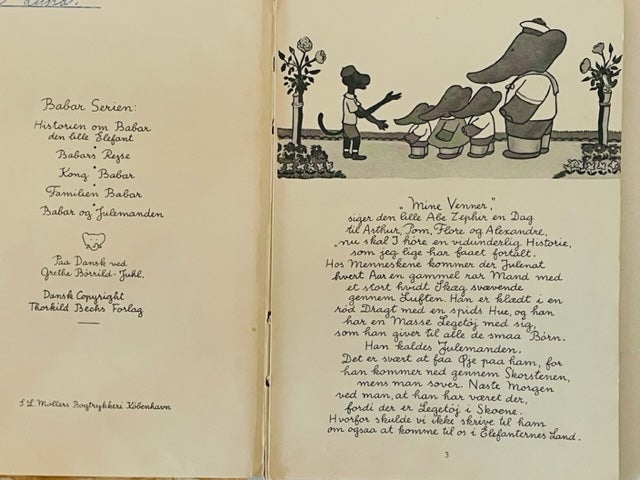 Lund.
Babar Serien:
Historien om Babar
den lille Elefant
Babars Rejse
Kong Babar
Familien Babar
Babar og Julemanden
Paa Dansk ved
Grethe Börrild-Juhl.
Dansk Copyright
Thorkild Bechs Forlag
S. L. Møllers Bogtrykkeri København
„Mine Venner,"
siger den lille Abe Zephir en Dag
til Arthur, Pom, Flore og Alexandre,
„nu skal I höre en vidunderlig Historie,
som jeg lige har faaet fortalt.
Hos Menneskene kommer der Julenat
hvert Aar en gammel rar Mand med
et stort hvidt Skæg svævende
gennem Luften. Han er klædt i en
röd Dragt med en spids Hue, og han
har en Masse Legetöj med sig,
som han giver til alle de smaa Börn.
Han kaldes Julemanden.
Det er svært at faa Øje paa ham, for
han kommer ned gennem Skorstenen,
mens man sover. Næste Morgen
ved man, at han har været der,
fordi der er Legetöj i Skoene.
Hvorfor skulde vi ikke skrive til ham
om ogsaa at komme til os i Elefanternes Land.
3